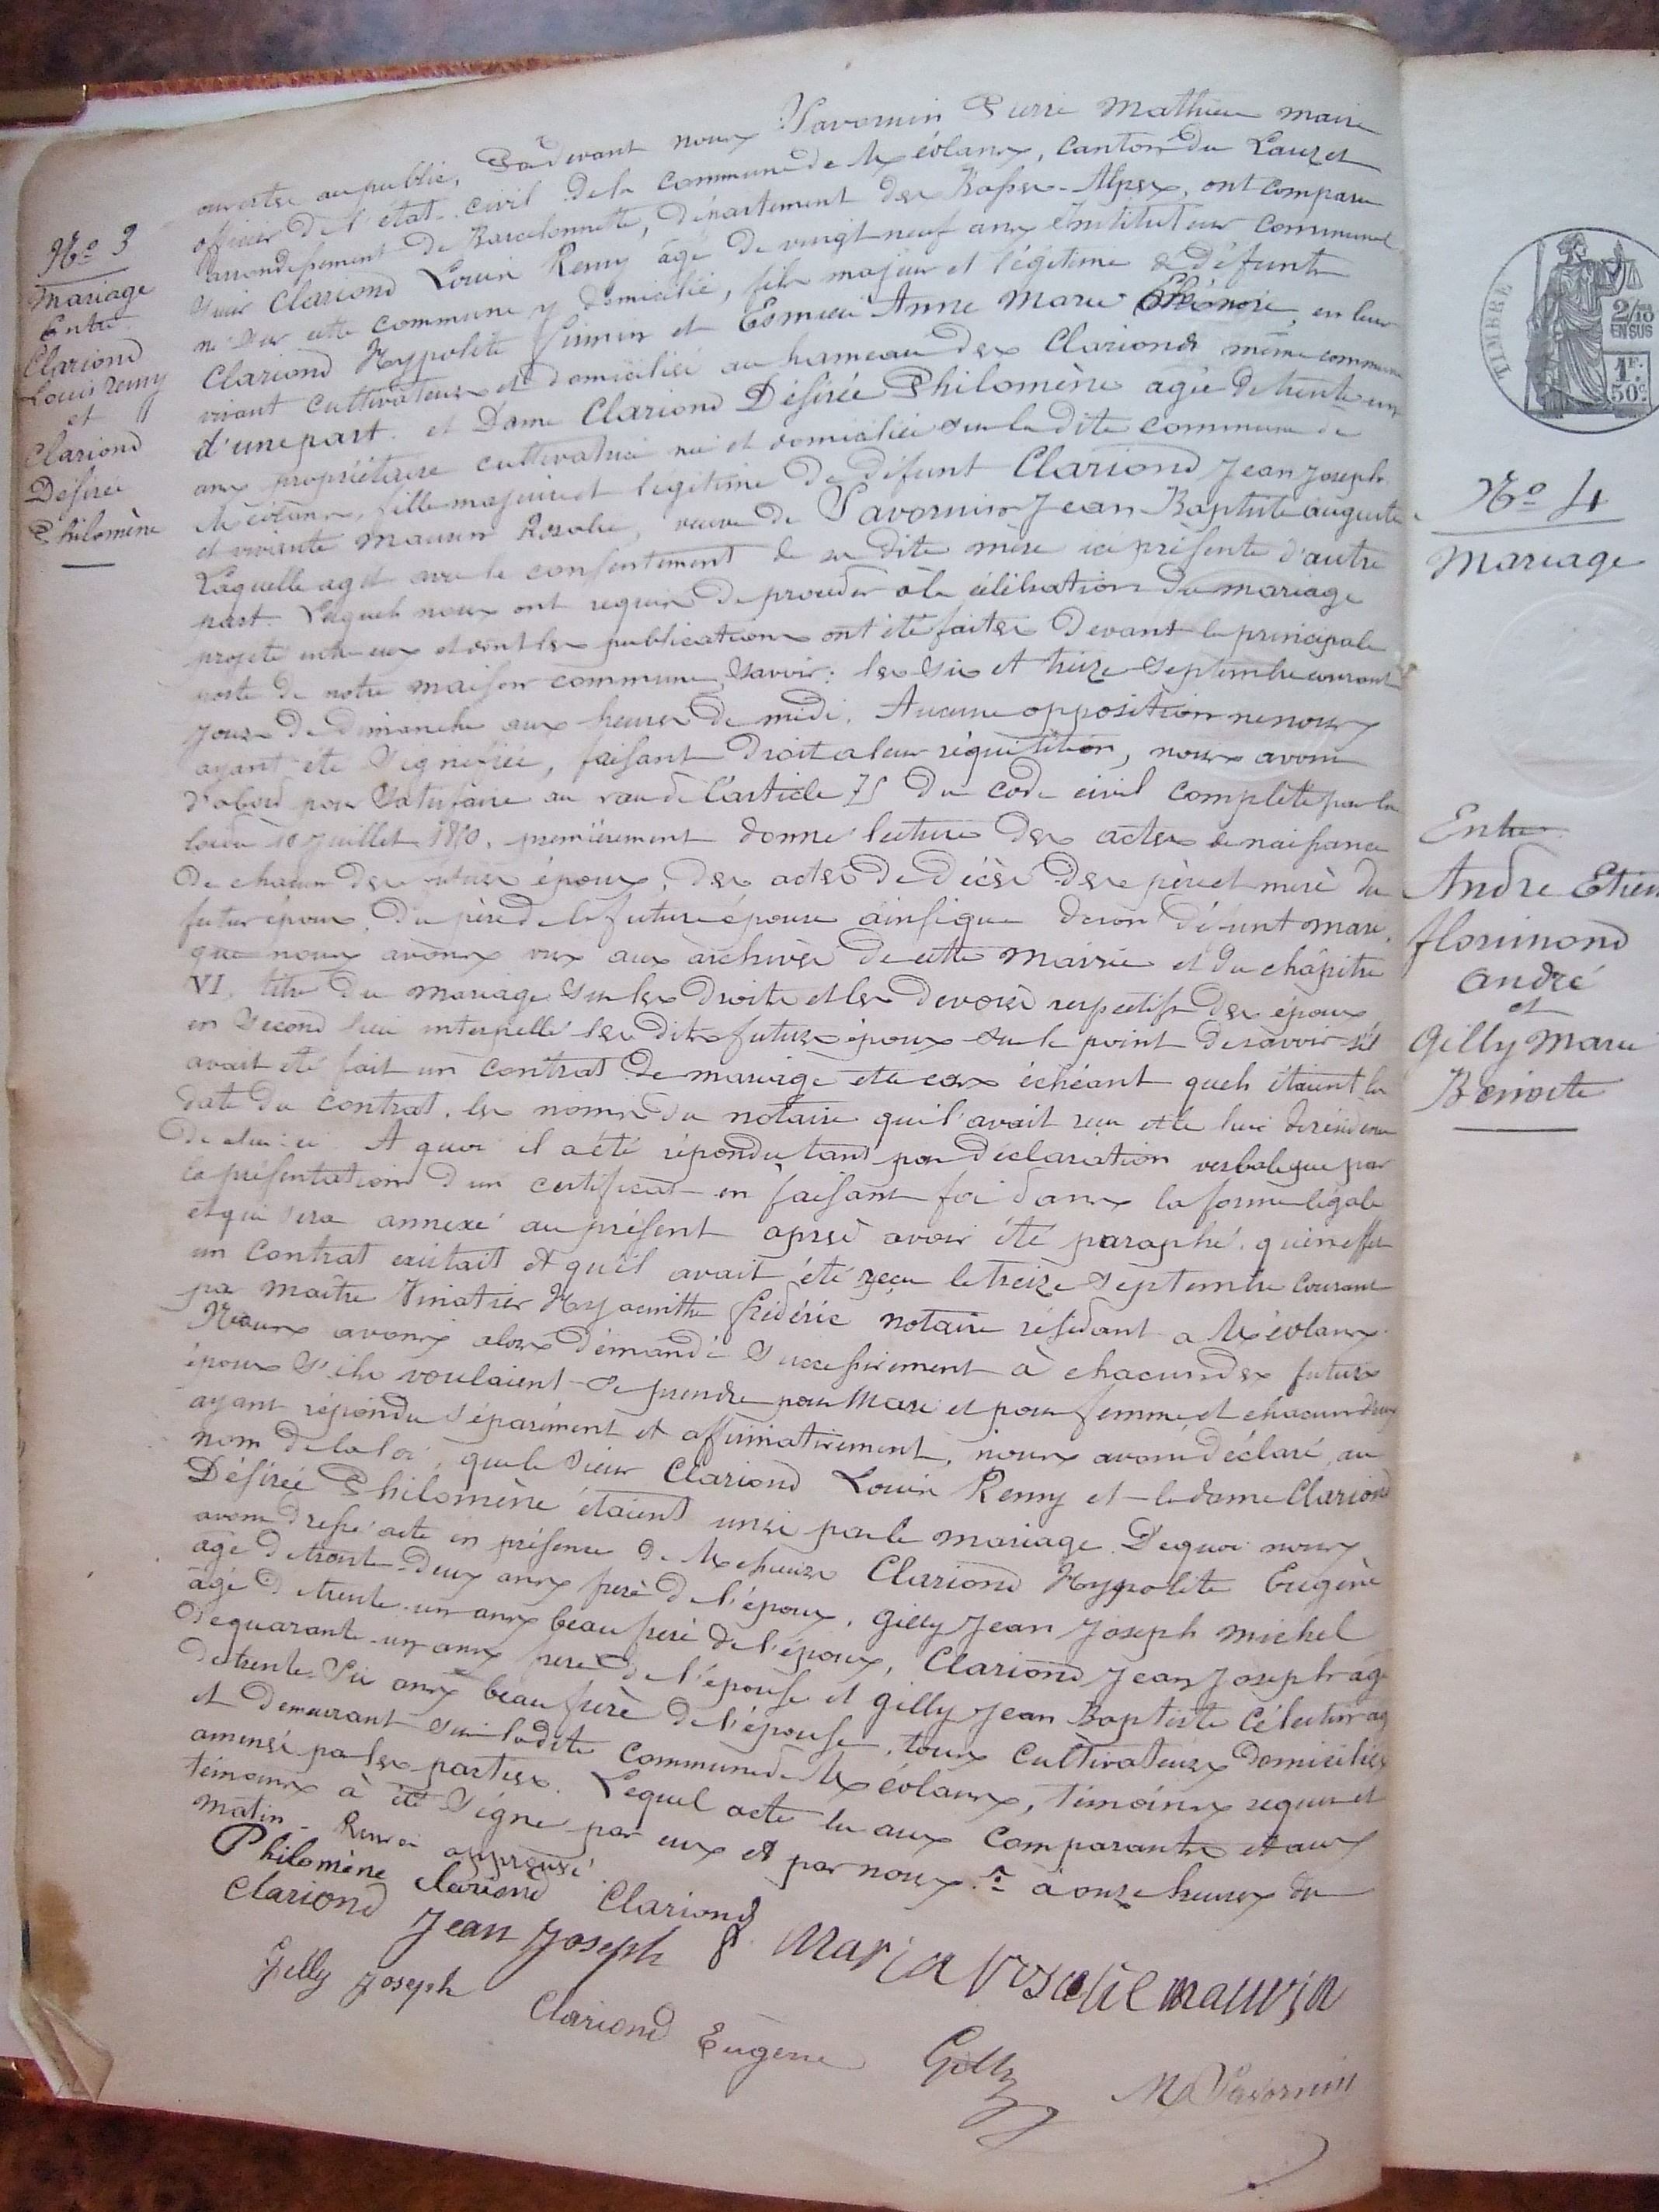 N° 3
Mariage
Entre
Clariond
Louis remy
et
Clariond
Désirée
Philomène
ouvertes au public, Pardevant nous Savornin Pierre Mathieu maire
officier de l'état-civil de la commune de Méolans, canton du Lauzet
arrondissement de Barcelonnette, département des Basses-Alpes, ont comparu
Sieur Clariond Louis Remy âgé de vingt neuf ans Instituteur communal
né sur cette commune y domicilié, fils majeur et légitime de défunts
Clariond Hypolite firmin et Esmieu Anne Marie Eléonore, en leur
vivant cultivateurs et domiciliés au hameau des Clarionds même commune
d'une part. et Dame Clariond Désirée Philomène agée de trente un
ans propriétaire cultivatrice née et domiciliée sur la dite commune de
Méolans, fille majeure et légitime de défunt Clariond Jean Joseph
et vivante Maurin Rosalie, veuve de Savornin Jean Baptiste auguste
Laquelle agit avec le consentement de sa dite mère ici présente d'autre
part. Lesquels nous ont requis de procéder à la célébration du mariage
projeté entre eux et dont les publications ont été faites devant la principale
porte de notre maison commune, savoir: les six et treize septembre courant
jours de dimanche aux heures de midi. Aucune opposition ne nous
ayant été signifiée, faisant droit a leur réquisition, nous avons
d'abord pour satisfaire au vœu de l'article 75 du code civil complété par la
loi du 10 juillet 1850, premièrement donné lecture des actes de naissance
de chacun des futurs époux, des actes de décès des père et mère du
futur époux, du père de la future épouse ainsi que de son défunt mari,
que nous avons vus aux archives de cette Mairie et du chapitre
VI, titre du mariage sur les droits et les devoirs respectifs des époux
en second lieu interpellé les dits futurs époux sur le point de savoir s'il
avait été fait un contrat de mariage et le cas échéant quels étaient la
date du contrat, les noms du notaire qui l'avait reçu et le lieu de résidence
de celui-ci. A quoi il a été répondu tant par déclaration verbale que par
la présentation d'un certificat en faisant foi dans la forme légale
et qui sera annexé au présent après avoir été paraphé, qu'en effet
un contrat existait et qu'il avait été reçu le treize septembre courant
par maître Vinatier Hyacinthe frédéric notaire résidant a Méolans.
Nous avons alors demandé successivement à chacun des futurs
époux s'ils voulaient se prendre pour mari et pour femme, et chacun d'eux
ayant répondu séparément et affirmativement, nous avons déclaré, au
nom de la loi, que le Sieur Clariond Louis Remy et la dame Clariond
Désirée Philomène étaient unis par le mariage. De quoi nous
avons dressé acte en présence de Messieurs Clariond Hypolite Eugène
âgé de trente-deux ans frère de l'époux, Gilly Jean Joseph Michel
âgé de trente-un ans beau frère de l'époux, Clariond Jean Joseph âgé
de quarante-un ans frère de l'épouse et Gilly Jean Baptiste Célestin âgé
de trente-six ans beau frère de l'épouse, tous cultivateurs domiciliés
et demeurant sur la dite commune de Méolans, témoins requis et
amenés par les parties. Lequel acte lu aux comparants et aux
témoins à été signé par eux et par nous. à onze heures du
matin - Renvoi approuvé.
Philomène Clariond Clariond
Clariond Jean Joseph Maria rosalie maurin
Gilly Joseph Clariond Eugène Gilly M Savornin
TIMBRE
2/10
EN SUS
1F.
50c.
N° 4
Mariage
Entre
André Etien
florimond
André
et
Gilly Marie
Benoite